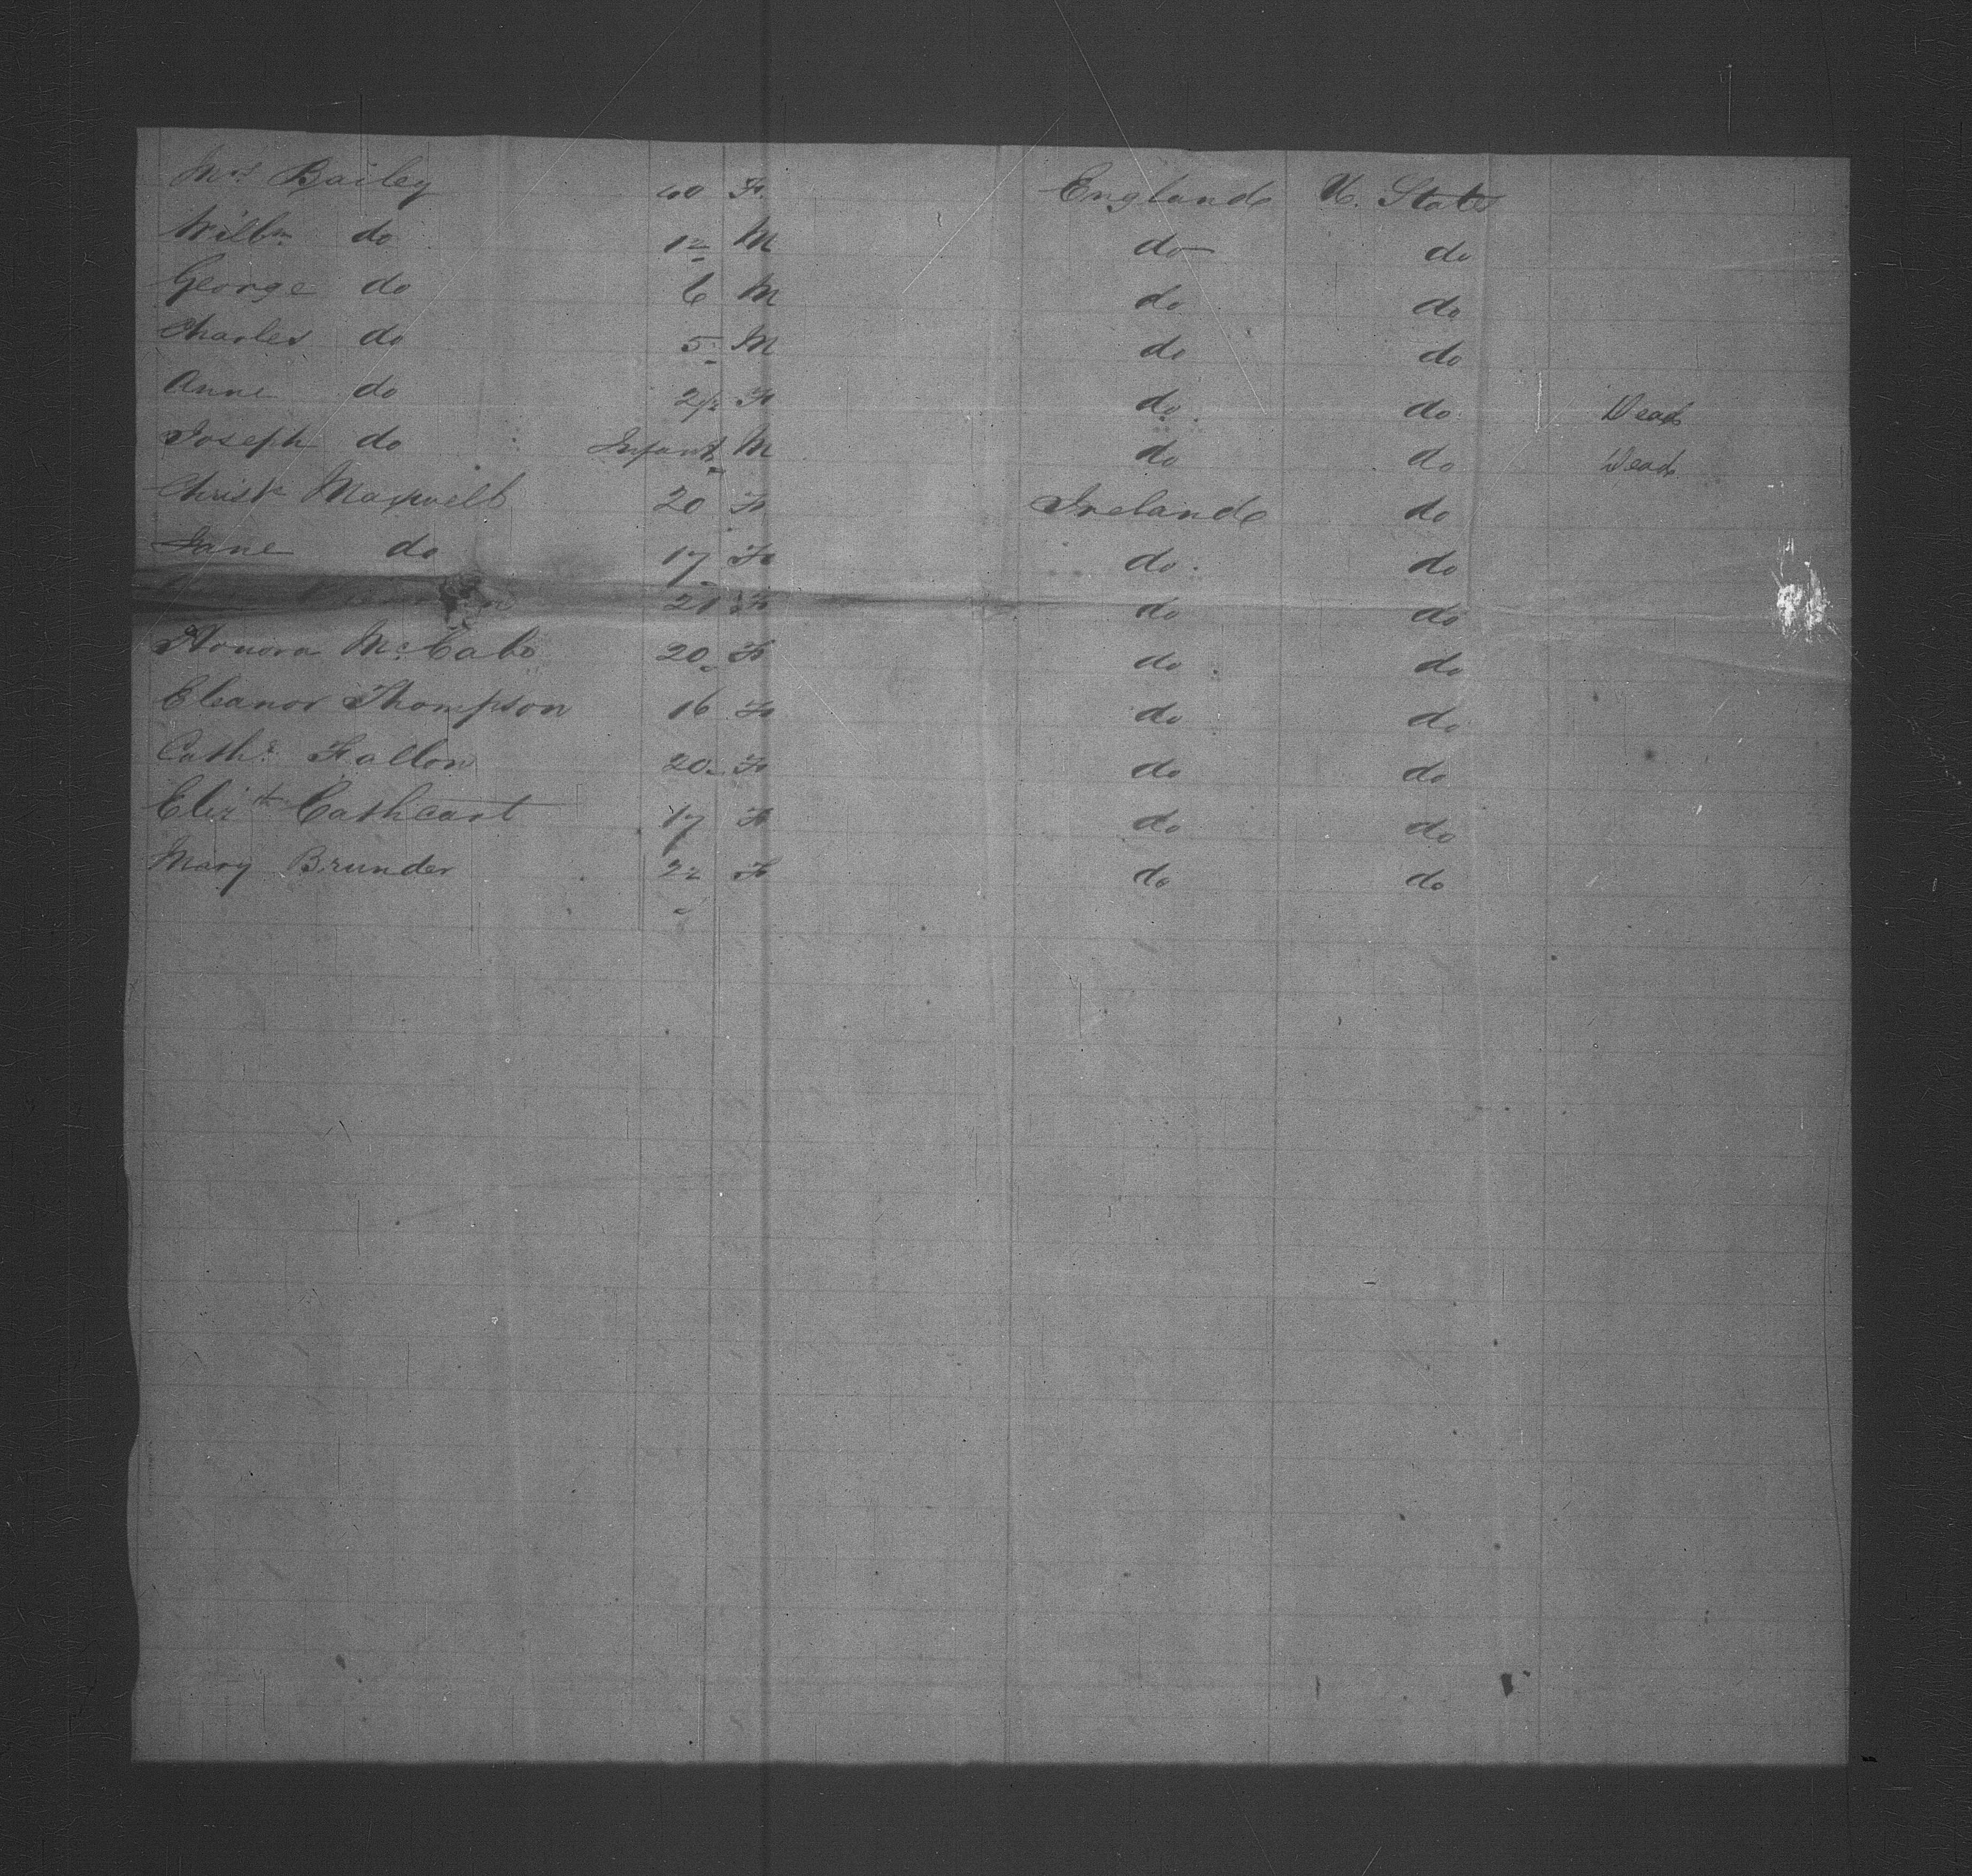 Mrs Bailey 40 F. England U. States
Willm do 12 M do do
George do 6 M do do
Charles do 5 M do do
Anne do 2½ F do do Dead
Joseph do Infant M do do Dead
Maxwell 20 F Ireland do
Jane do 17 F do do
21 F do do
Honora McCabe 20 F do do
Eleanor Thompson 16 F do do
Cathe Fallon 20 F do do
Elizth Cathcart 17 F do do
Mary Brunder 22 F do do